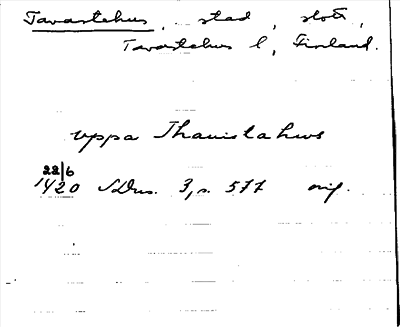 Tavastehus, stad, slott,
Tavastehus l, Finland.
uppa Thauistahws
22/6
1420 SDns. 3, s. 577 orig.